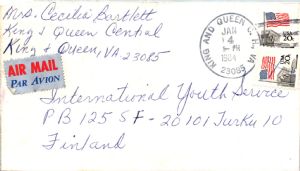 Mrs. Cecilia Bartlett
King & Queen Central
King & Queen, VA. 23085
AIR MAIL
PAR AVION
KING AND QUEEN C.H., VA
JAN
4
PM
1984
23085
USA
20c
International Youth Service
PB 125 SF-20101 Turku 10
Finland